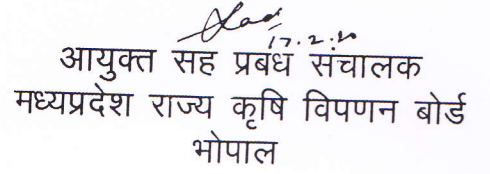 17.2.20
आयुक्त सह प्रबंध संचालक
मध्यप्रदेश राज्य कृषि विपणन बोर्ड
भोपाल